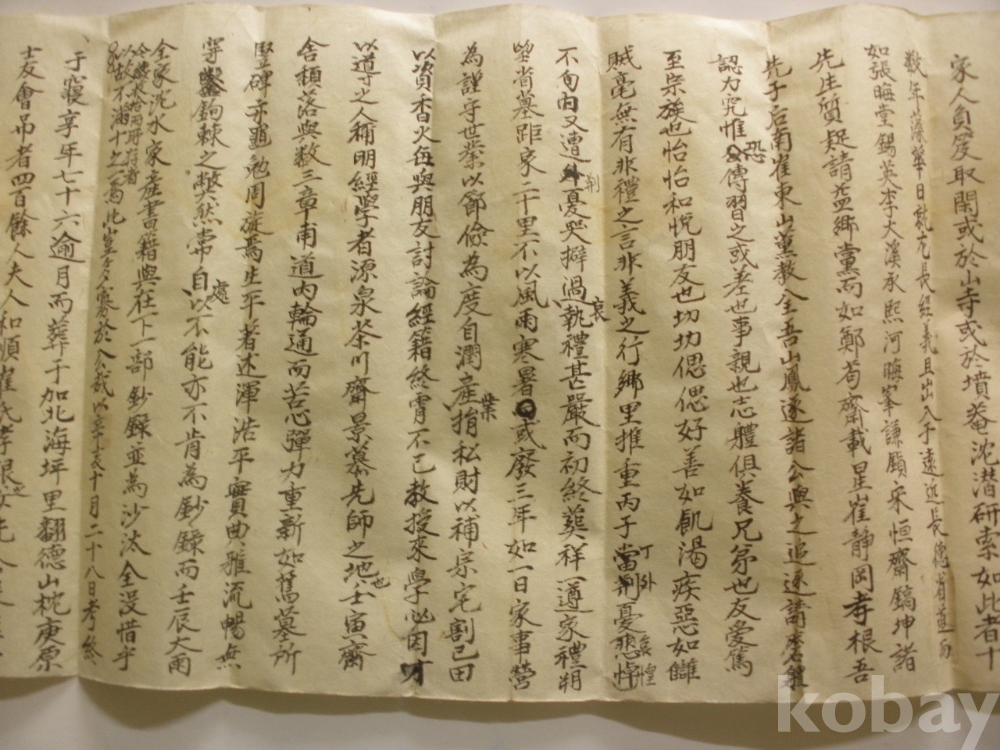 家人負笈取閑或於山寺或於墳菴沈潛研索如此者十
數年藻華日就尤長經義且出入于遠近長德者道而
如張晦堂錫英李大溪承熙河晦峯謙鎭宋恒齋鎬坤諸
先生質疑請益鄉黨而如鄭苟齋載星崔靜岡孝根吾
先子后南崔東山薰敎全吾山鳳遂諸公與之追逐講磨難
認力究惟恐傳習之或差也事親也志體俱養兄弟也友愛篤
至宗族也怡怡和悅朋友也切切偲偲好善如飢渴疾惡如讎
賊毫無有非禮之言非義之行鄉里推重丙子當丁外憂悲悼
不旬內又遭荊憂哭擗過哀執禮甚嚴而初終葬祥一遵家禮朔
望省墓距家二十里不以風雨寒暑或廢三年如一日家事營
為謹守世業以節儉為度自潤產業捐私財以補宗宅割己田
以資香火每與朋友討論經籍終霄不已教授來學必因才
以道之人稱明經學者源泉茶川齋景慕先師之地也壬寅齋
舍頹落與数三章甫道內輪通而苦心彈力重新如舊墓所
竪碑亦黽勉周旋焉生平著述渾浩平實曲雅流暢無
穿鑿鉤棘之弊然常自處以不能亦不肯為鈔錄而壬辰大雨
全家沈水家產書籍與在下一部鈔錄並為沙汰全沒惜乎
以故不滿十之一焉
十月二十八日考終
于寢享年七十六逾月而葬于加北海坪里翻德山枕庚原
士友會吊者四百餘人夫人和順崔氏孝根